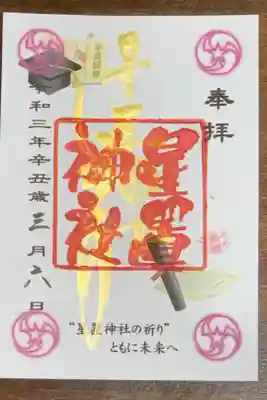 奉拝
星置
神社
令和三年辛丑歳三月六日
“星置神社の祈り”
ともに未来へ